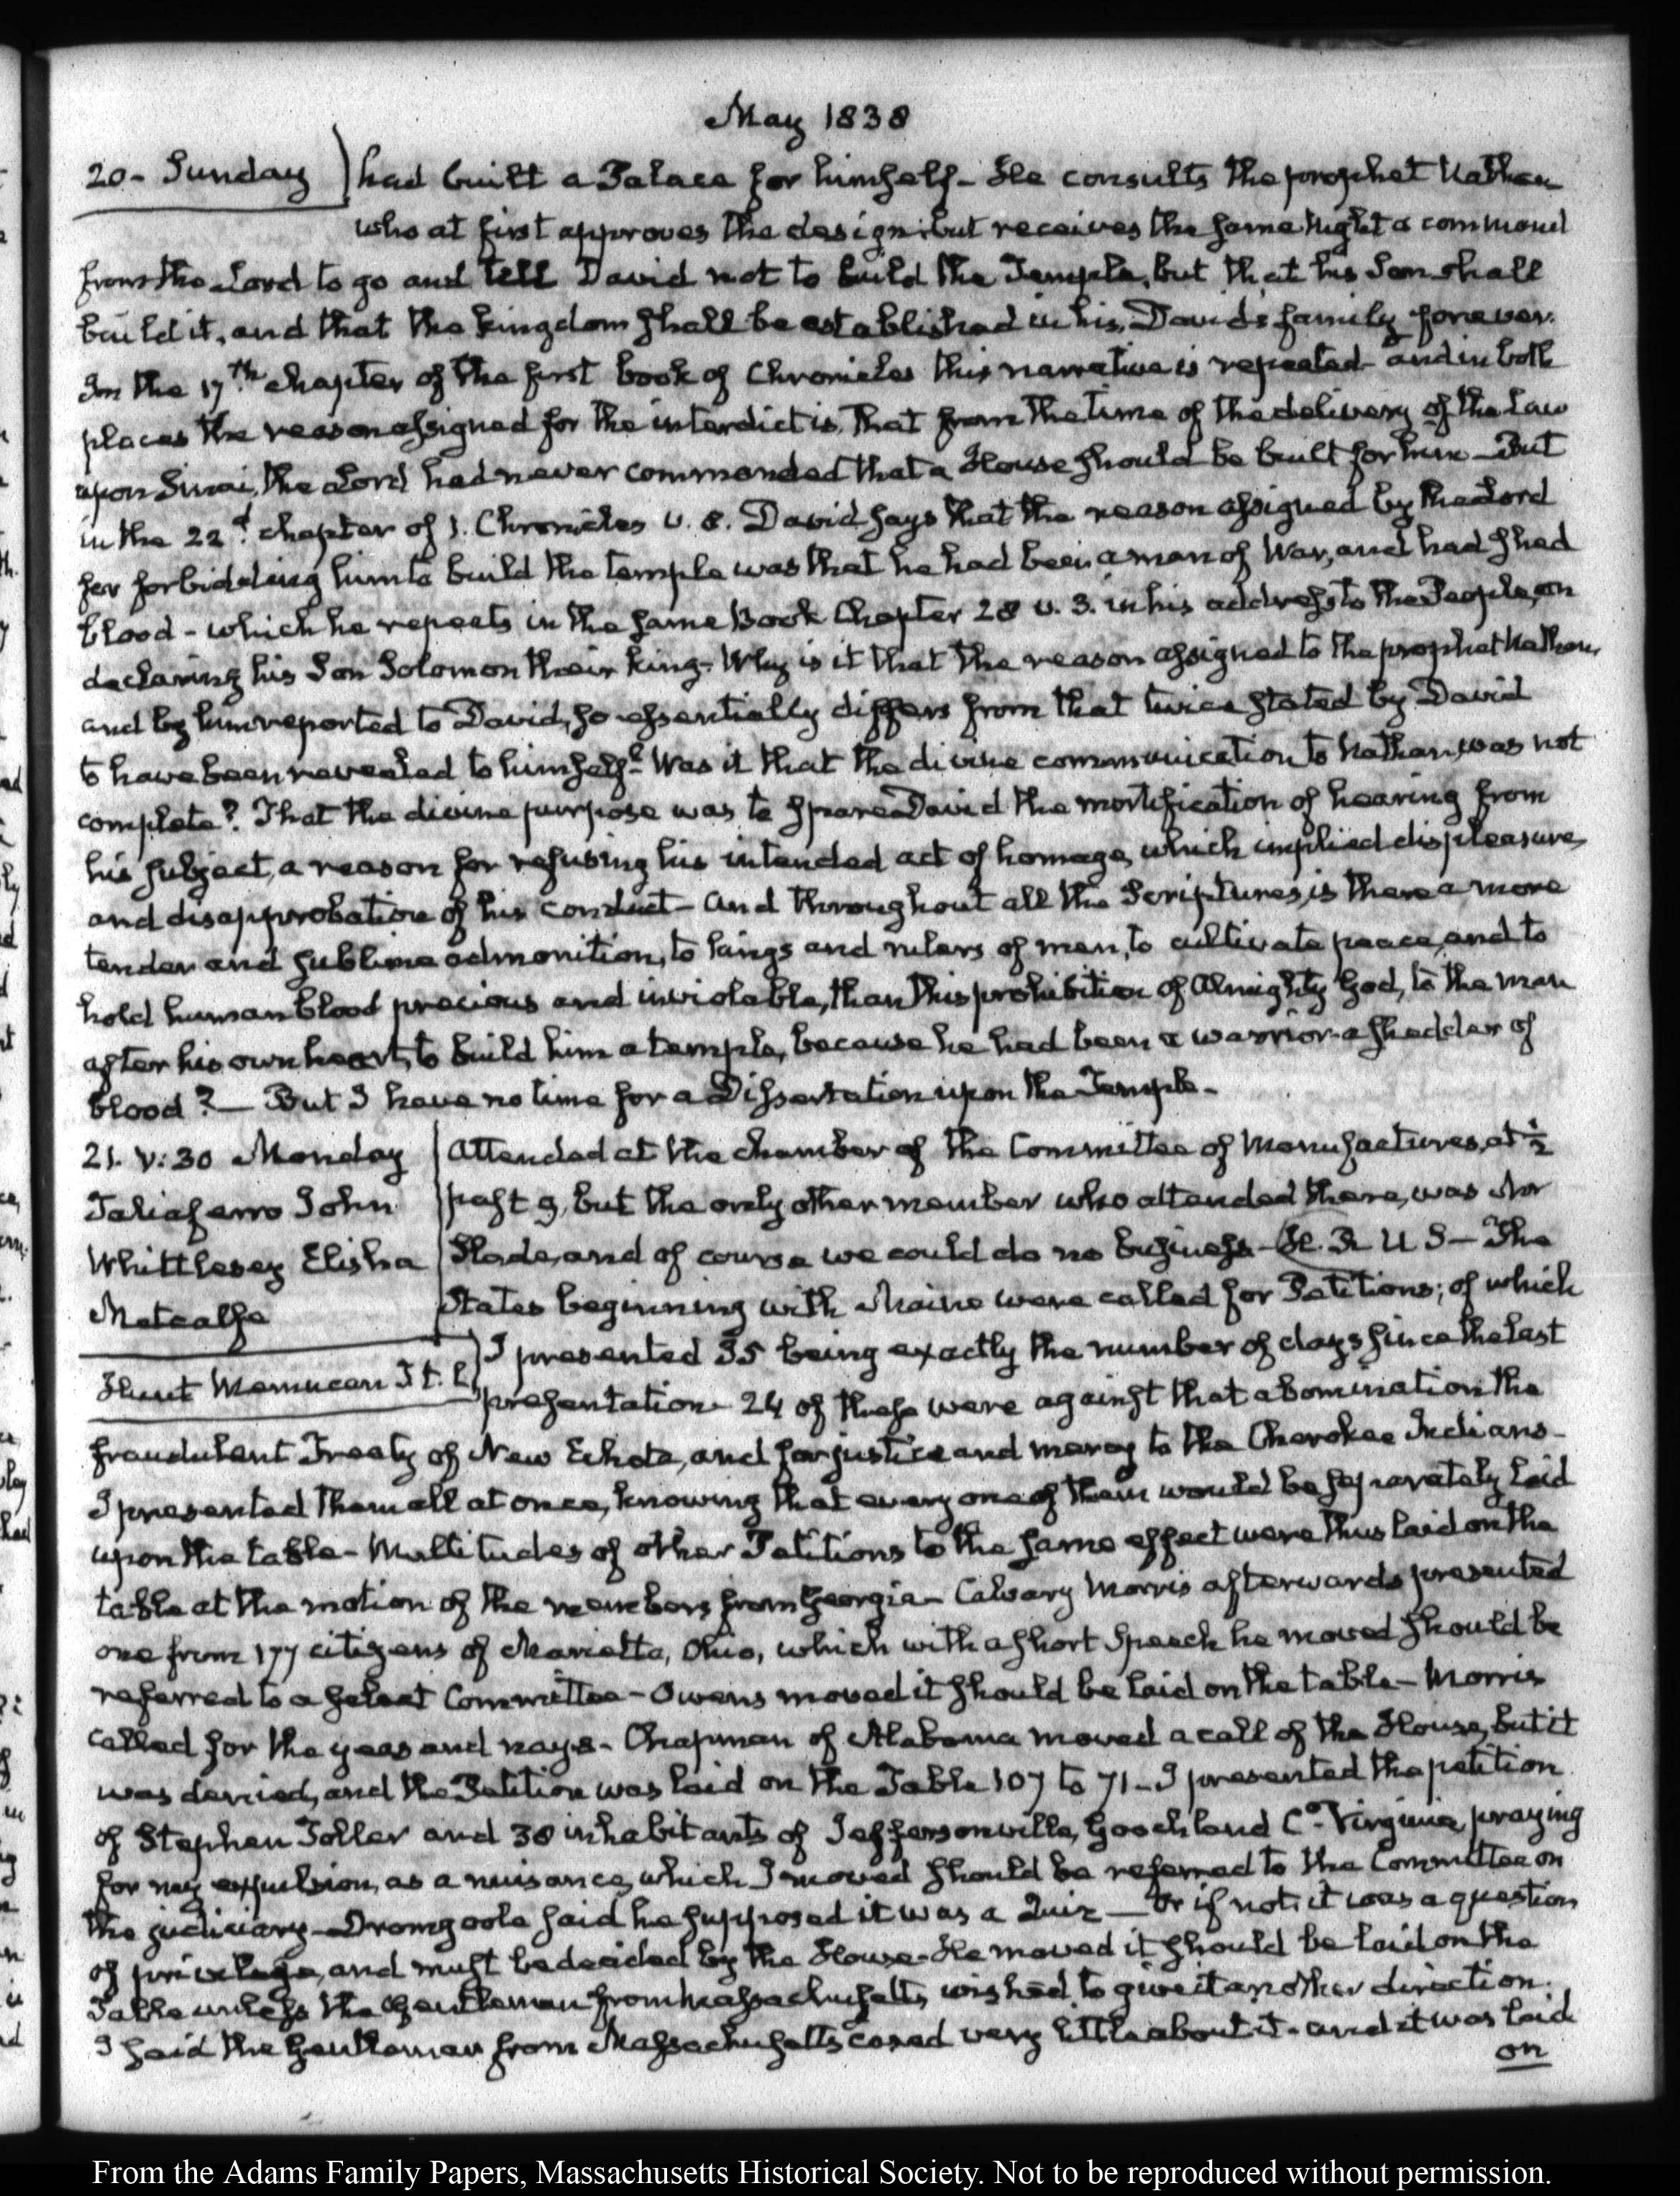 May 1838
20 - Sunday
had built a Palace for himself - He consults the prophet Nathan
who at first approves the design: but receives the same Night a command
from the Lord to go and tell David not to build the Temple, but that his Son shall
build it, and that the kingdom shall be established in his, David's family forever.
In the 17th chapter of the first book of Chronicles this narrative is repeated - and in both
places the reason assigned for the interdict is, that from the time of the delivery of the Law
upon Sinai, the Lord had never commanded that a House should be built for him - But
in the 22d chapter of 1. Chronicles v. 8. David says that the reason assigned by the Lord
for forbidding him to build the temple was that he had been a man of War, and had shed
blood - which he repeats in the same Book Chapter 28 v. 3. in his address to the People, on
declaring his Son Solomon their king - Why is it that the reason assigned to the prophet Nathan,
and by him reported to David, so essentially differs from that twice stated by David
to have been revealed to himself? Was it that the divine communication to Nathan, was not
complete? That the divine purpose was to spare David the mortification of hearing from
his subject, a reason for refusing his intended act of homage, which implied displeasure,
and disapprobation of his conduct - And throughout all the Scriptures, is there a more
tender and sublime admonition, to kings and rulers of men, to cultivate peace, and to
hold human blood precious and inviolable, than this prohibition of Almighty God, to the man
after his own heart, to build him a temple, because he had been a warrior - a shedder of
blood? — But I have no time for a Dissertation upon the Temple -
21. V: 30 Monday
Taliaferro John
Whittlesey Elisha
Metcalfe
Hunt Memucan
Attended at the chamber of the Committee of Manufactures, at ½
past 9, but the only other member who attended there, was Mr
Slade, and of course we could do no business - H. R. U S — The
States beginning with Maine were called for Petitions; of which
I presented 35 being exactly the number of days since the last
presentation - 24 of these were against that abomination the
fraudulent Treaty of New Echota, and for justice and mercy to the Cherokee Indians -
I presented them all at once, knowing that every one of them would be separately laid
upon the table - Multitudes of other Petitions to the same effect were thus laid on the
table at the motion of the members from Georgia - Calvary Morris afterwards presented
one from 177 citizens of Marietta, Ohio, which with a short Speech he moved should be
referred to a select Committee - Owens moved it should be laid on the table - Morris
called for the yeas and nays - Chapman of Alabama moved a call of the House, but it
was denied, and the Petition was laid on the Table 107 to 71 - I presented the petition
of Stephen Toller and 38 inhabitants of Jeffersonville, Goochland Co. Virginia, praying
for my expulsion, as a nuisance, which I moved should be referred to the Committee on
the judiciary - Dromgoole said he supposed it was a Quiz — Or if not it was a question
of privilege, and must be decided by the House - He moved it should be laid on the
Table unless the Gentleman from Massachusetts, wished to give it another direction.
I said the Gentleman from Massachusetts cared very little about it - and it was laid
on
From the Adams Family Papers, Massachusetts Historical Society. Not to be reproduced without permission.